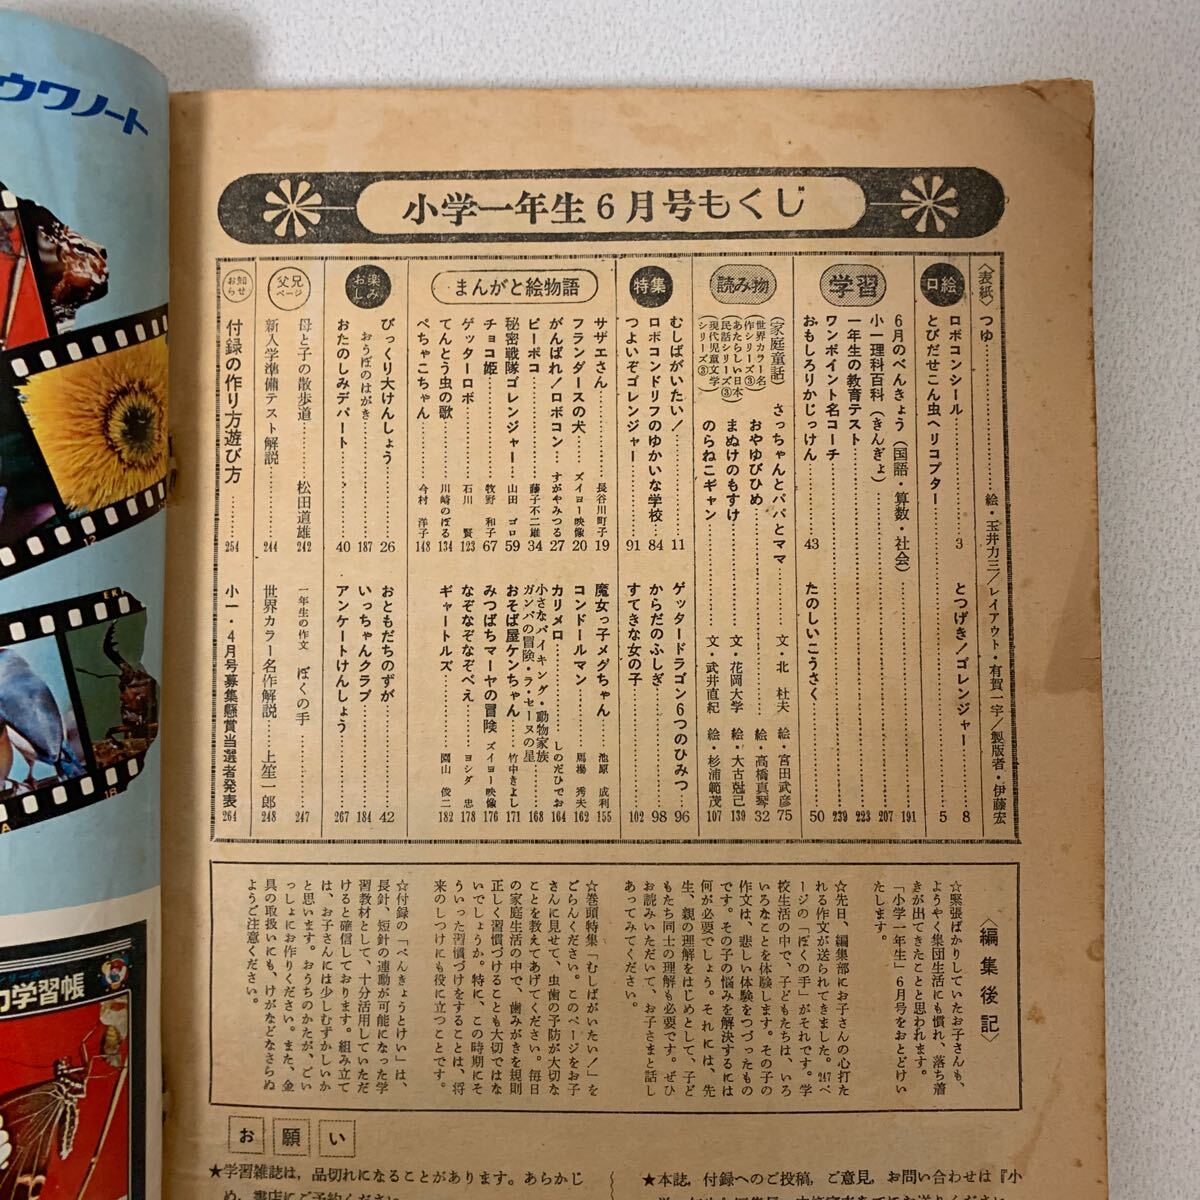 ウワノート
小学一年生6月号もくじ
〈表紙〉つゆ……絵・玉井力三/レイアウト・有賀一宇/製版者・伊藤宏
口絵
ロボコンシール……3
とびだせこん虫ヘリコプター
とつげき!ゴレンジャー……8
5
学習
6月のべんきょう(国語・算数・社会)……191
小一理科百科(きんぎょ)……207
一年生の教育テスト……223
ワンポイント名コーチ……239
おもしろりかじっけん……43
たのしいこうさく……50
読み物
(家庭童話)さっちゃんとパパとママ 文・北 杜夫 絵・宮田武彦 75
(世界カラー名作シリーズ③)おやゆびひめ……絵・高橋真琴 32
(あたらしい日本民話シリーズ③)まぬけのもすけ……文・花岡大学 絵・大古尅己 139
(現代児童文学シリーズ③)のらねこギャン……文・武井直紀 絵・杉浦範茂 107
特集
むしばがいたい!……11
ロボコンドリフのゆかいな学校……84
つよいぞゴレンジャー……91
ゲッタードラゴン6つのひみつ……96
からだのふしぎ……98
すてきな女の子……102
まんがと絵物語
サザエさん……長谷川町子 19
フランダースの犬……ズイヨー映像 20
がんばれ!ロボコン……すがやみつる 27
ピーポコ……藤子不二雄 34
秘密戦隊ゴレンジャー……山田 ゴロ 59
チョコ姫……牧野 和子 67
ゲッターロボ……石川 賢 123
てんとう虫の歌……川崎のぼる 134
ぺちゃこちゃん……今村 洋子 148
魔女っ子メグちゃん……池原 成利 155
コンドールマン……馬場 秀夫 162
カリメロ……しのだひでお 164
小さなバイキング・動物家族
ガンバの冒険・ラ・セーヌの星……168
おそば屋ケンちゃん……竹中きよし 171
みつばちマーヤの冒険 ズイヨー映像 176
なぞなぞなぞべえ……ヨシダ 忠 178
ギャートルズ……園山 俊二 182
お楽しみ
びっくり大けんしょう……26
おうぼのはがき……187
おたのしみデパート……40
おともだちのずが……42
いっちゃんクラブ……184
アンケートけんしょう……267
父兄ページ
母と子の散歩道……松田道雄 242
新入学準備テスト解説……244
一年生の作文 ぼくの手……247
世界カラー名作解説……上笙一郎 248
お知らせ
付録の作り方遊び方……254
小一・4月号募集懸賞当選者発表 264
〈編集後記〉
☆緊張ばかりしていたお子さんも、
ようやく集団生活にも慣れ、落ち着
きが出てきたことと思われます。
「小学一年生」6月号をおとどけい
たします。
☆先日、編集部にお子さんの心打た
れる作文が送られてきました。247ペ
ージの「ぼくの手」がそれです。学
校生活の中で、子どもたちは、いろ
いろなことを体験します。その子の
作文は、悲しい体験をつづったもの
です。その子の悩みを解決するには
何が必要でしょう。それには、先
生、親の理解をはじめとして、子ど
もたち同士の理解も必要です。ぜひ
お読みいただいて、お子さまと話し
あってみてください。
☆巻頭特集「むしばがいたい!」を
ごらんください。このページをお子
さんに見せて、虫歯の予防が大切な
ことを教えてあげてください。毎日
の家庭生活の中で、歯みがきを規則
正しく習慣づけることも大切ではな
いでしょうか。特に、この時期にそ
ういった習慣づけをすることは、将
来のしつけにも役に立つことです。
☆付録の「べんきょうとけい」は、
長針、短針の運動が可能になった学
習教材として、十分活用していただ
けると確信しております。組み立て
は、お子さんには少しむずかしいか
と思います。おうちのかたが、ごい
っしょにお作りください。また、金
具の取扱いにも、けがなどなさらぬ
ようご注意ください。
お願い
★学習雑誌は,品切れになることがあります。あらかじ
め,書店にご予約ください。
★本誌,付録へのご投稿,ご意見,お問い合わせは『小
学習帳